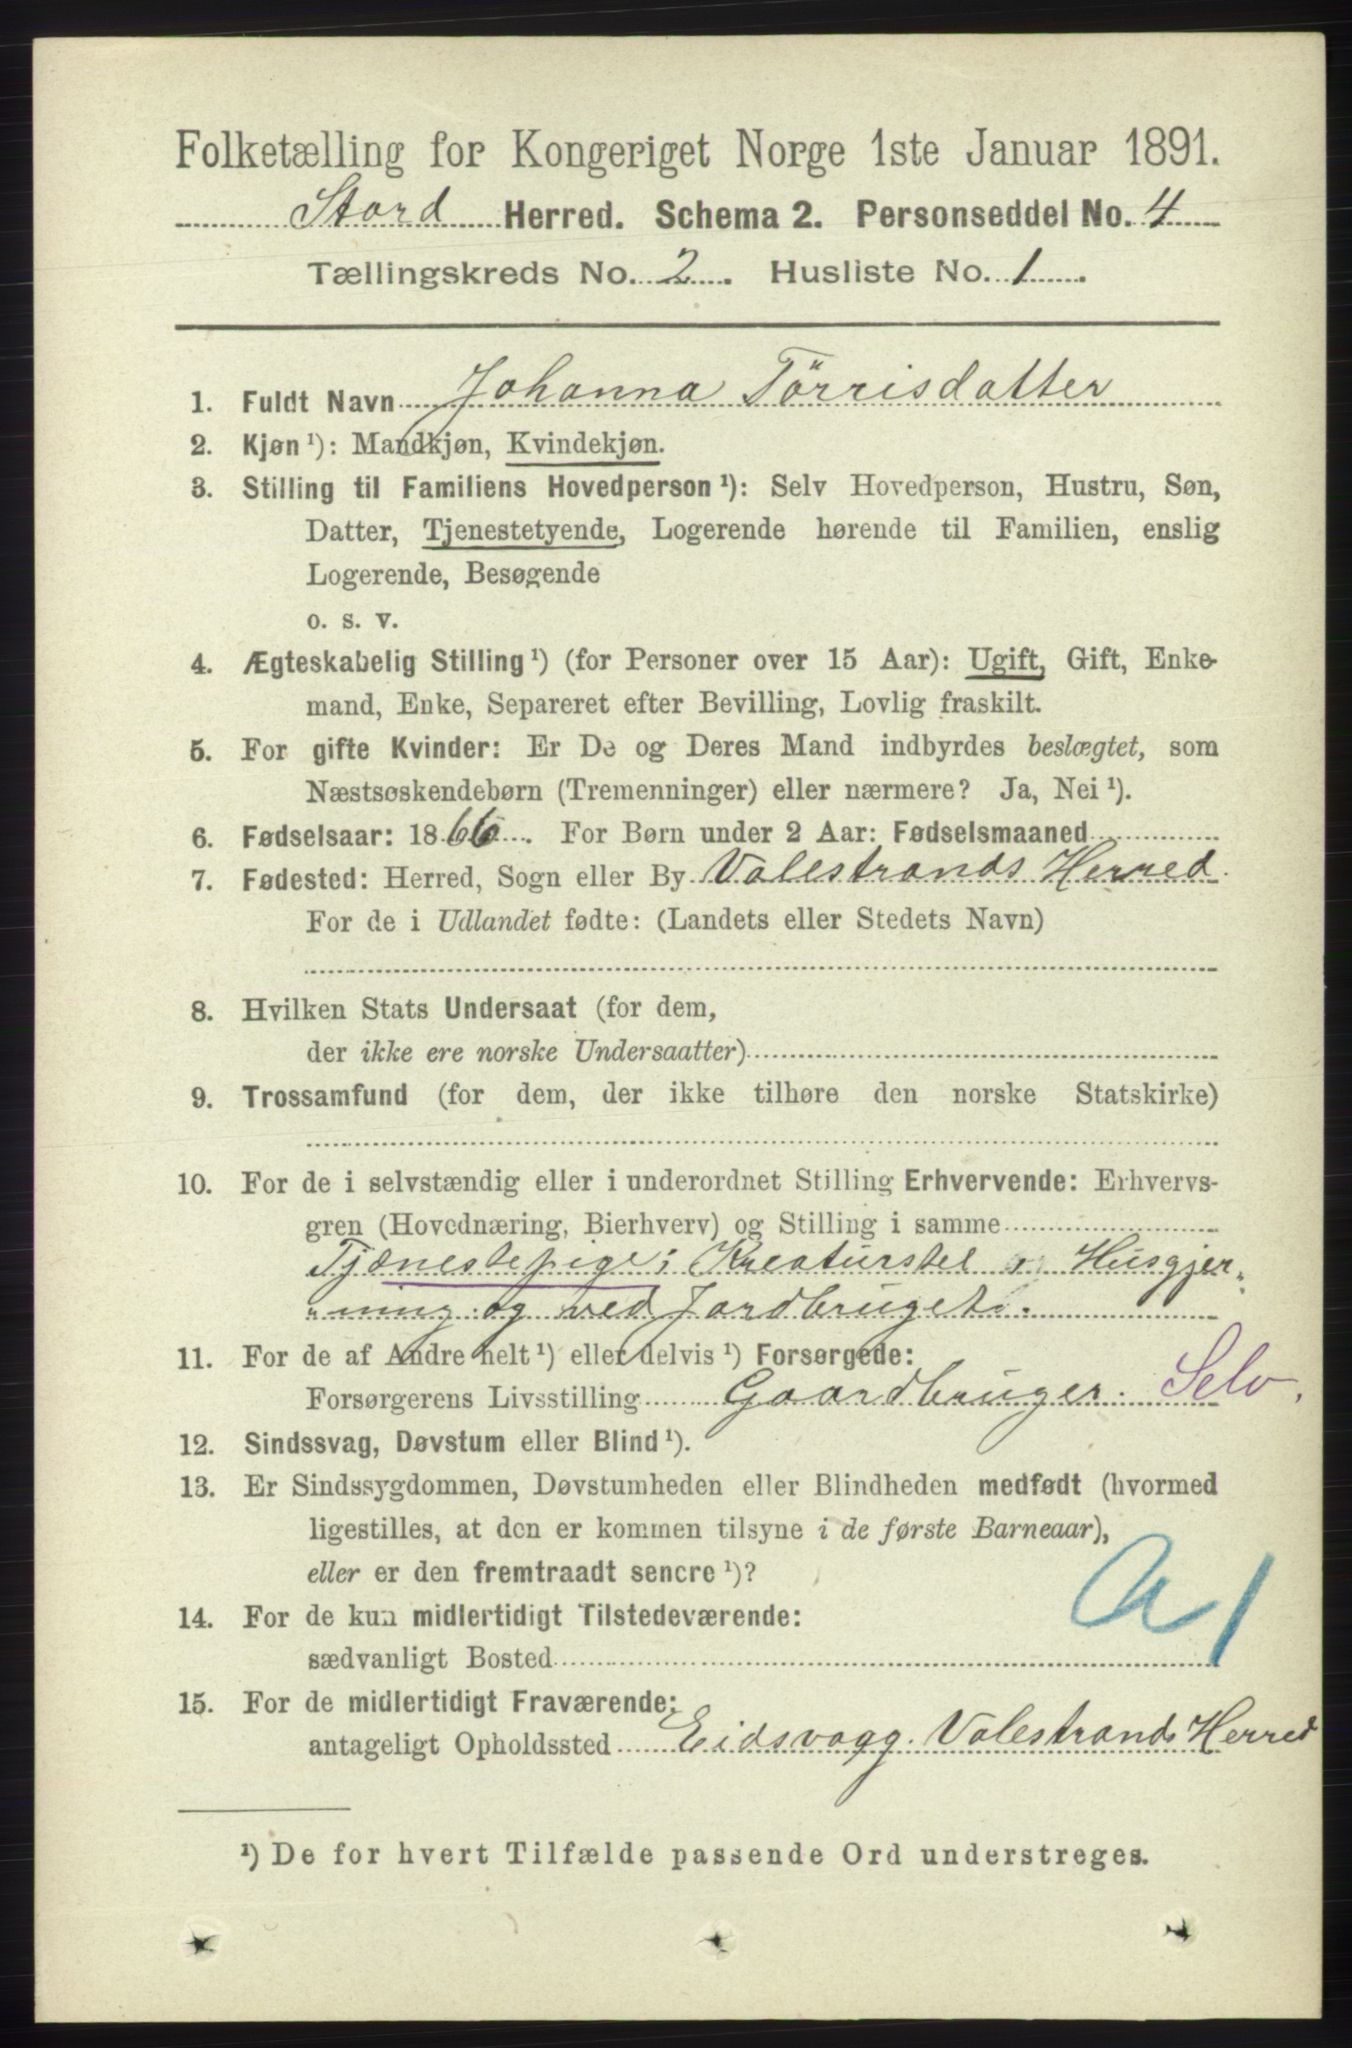 Folketælling for Kongeriget Norge 1ste Januar 1891.
Stord Herred. Schema 2. Personseddel No. 4
Tællingskreds No. 2. Husliste No. 1.
1. Fuldt Navn Johanna Törrisdatter
2. Kjøn ¹): Mandkjøn, Kvindekjøn.
3. Stilling til Familiens Hovedperson ¹): Selv Hovedperson, Hustru, Søn,
Datter, Tjenestetyende, Logerende hørende til Familien, enslig
Logerende, Besøgende
o. s. v.
4. Ægteskabelig Stilling ¹) (for Personer over 15 Aar): Ugift, Gift, Enke-
mand, Enke, Separeret efter Bevilling, Lovlig fraskilt.
5. For gifte Kvinder: Er De og Deres Mand indbyrdes beslægtet, som
Næstsøskendebørn (Tremenninger) eller nærmere? Ja, Nei ¹).
6. Fødselsaar: 1866. For Børn under 2 Aar: Fødselsmaaned
7. Fødested: Herred, Sogn eller By Valestrands Herred.
For de i Udlandet fødte: (Landets eller Stedets Navn)
8. Hvilken Stats Undersaat (for dem,
der ikke ere norske Undersaatter)
9. Trossamfund (for dem, der ikke tilhøre den norske Statskirke)
10. For de i selvstændig eller i underordnet Stilling Erhvervende: Erhvervs-
gren (Hovednæring, Bierhverv) og Stilling i samme
Tjenestepige i Kreaturstel Husgjer„
„ning og ved Jordbruget.
11. For de af Andre helt ¹) eller delvis ¹) Forsørgede:
Forsørgerens Livsstilling Gaardbruger. Selv.
12. Sindssvag, Døvstum eller Blind ¹).
13. Er Sindssygdommen, Døvstumheden eller Blindheden medfødt (hvormed
ligestilles, at den er kommen tilsyne i de første Barneaar),
eller er den fremtraadt senere ¹)?
14. For de kun midlertidigt Tilstedeværende:
sædvanligt Bosted
15. For de midlertidigt Fraværende:
antageligt Opholdssted Eidsvagg. Valestrands Herred
¹) De for hvert Tilfælde passende Ord understreges.